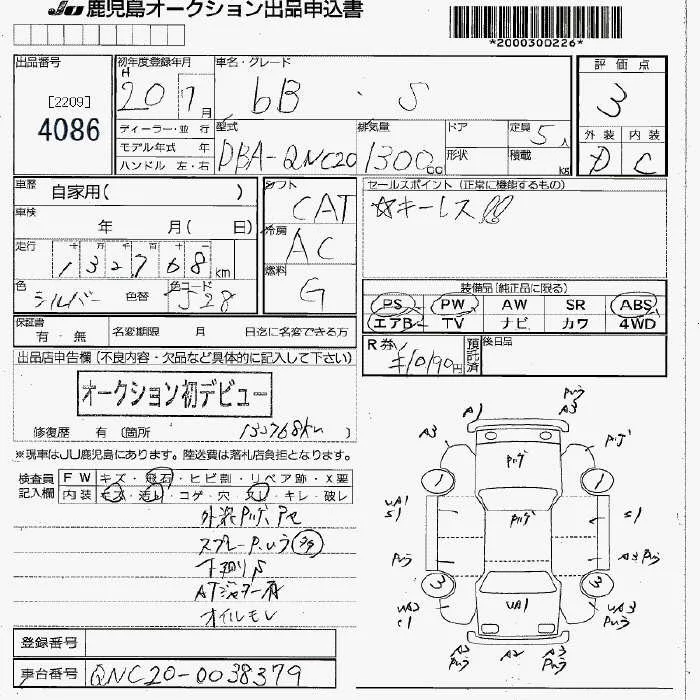 JU 鹿児島オークション出品申込書
*200030D226*
出品番号
[2209]
4086
初年度登録年月
H
20 7月
車名・グレード
bB ・ S
評価点
3
外装 内装
D C
ディーラー・並 行
モデル年式 年
ハンドル 左・右
型式
DBA-QNC20
排気量
1300cc
ドア
形状
定員 5人
積載 kg
車歴
自家用( )
シフト
CAT
セールスポイント (正常に機能するもの)
☆キーレス!!
車検
年 月( 日)
冷房
AC
走行
十 万 千 百 十 一
132768km
燃料
G
色
シルバー 色替
色コード
S28
装備品[純正品に限る]
PS PW AW SR ABS
エアB TV ナビ カワ 4WD
保証書
有・無
名変期限 月 日迄に名変できる方
R券
¥10190円
預託済
後日品
出品店申告欄 (不良内容・欠品など具体的に記入して下さい)
オークション初デビュー
修復歴 有 〔箇所 132768km 〕
※現車はJU鹿児島にあります。陸送費は落札店負担となります。
検査員
記入欄
FW キズ・飛石・ヒビ割・リペア跡・X要
内装 キズ・汚レ・コゲ・穴・スレ・キレ・破レ
スプレー
下廻りS
オイルモレ
A1
A3
A3
1
1
S1
S1
3
3
UA1
A2
A3
登録番号
車台番号 QNC20-0038379